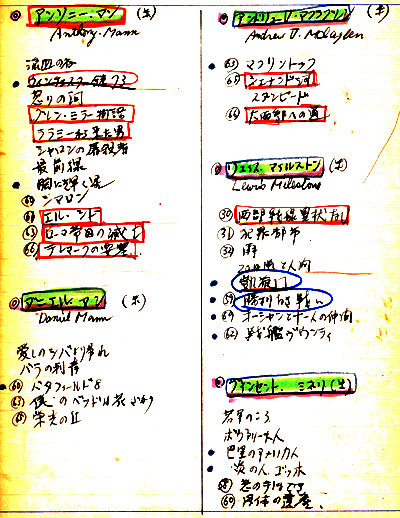 アンソニー・マン (米)
Anthony. Mann
流血の谷
ウィンチェスター銃73
怒りの河
グレン・ミラー物語
ララミーから来た男
シャロンの屠殺者
最前線
胸に輝く星
60 シマロン
61 エル・シド
63 ローマ帝国の滅亡
66 テレマークの要塞
ダニエル・マン (米)
Daniel Mann
愛しのシバよ帰れ
バラの刺青
60 バタフィールド8
63 僕のベッドは花ざかり
65 栄光の丘
アンドリュー・V・マクラグレン (米)
Andrew V. McLaglen
63 マクリントック
65 シェナンドー河
スタンピード
66 大西部への道
リュイス・マイルストン (米)
Lewis Milestone
30 西部戦線異状なし
31 犯罪都市
34 雨
二十日鼠と人間
凱旋門
59 勝利なき戦い
60 オーシャンと十一人の仲間
62 戦艦バウンティ
ヴィンセント・ミネリ (米)
若草のころ
ボヴァリー夫人
巴里のアメリカ人
炎の人 ゴッホ
恋の手ほどき
60 肉体の遺産